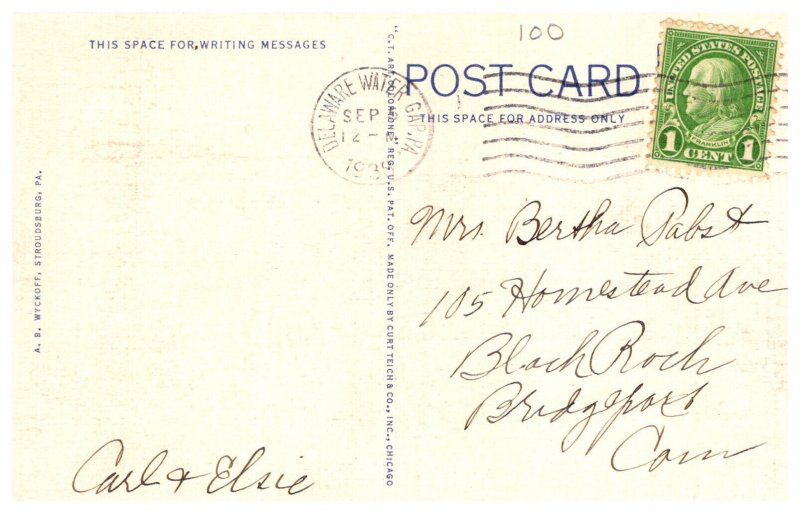 THIS SPACE FOR WRITING MESSAGES
100
POST CARD
THIS SPACE FOR ADDRESS ONLY
DELAWARE WATER GAP, PA.
SEP
12 -
UNITED STATES POSTAGE
FRANKLIN
1 CENT 1
"C.T. ART-COLORTONE" REG. U.S. PAT. OFF. MADE ONLY BY CURT TEICH & CO., INC., CHICAGO
A. B. WYCKOFF, STROUDSBURG, PA.
Mrs. Bertha Pabst
105 Homestead Ave
Black Rock
Bridgeport
Conn
Carl & Elsie